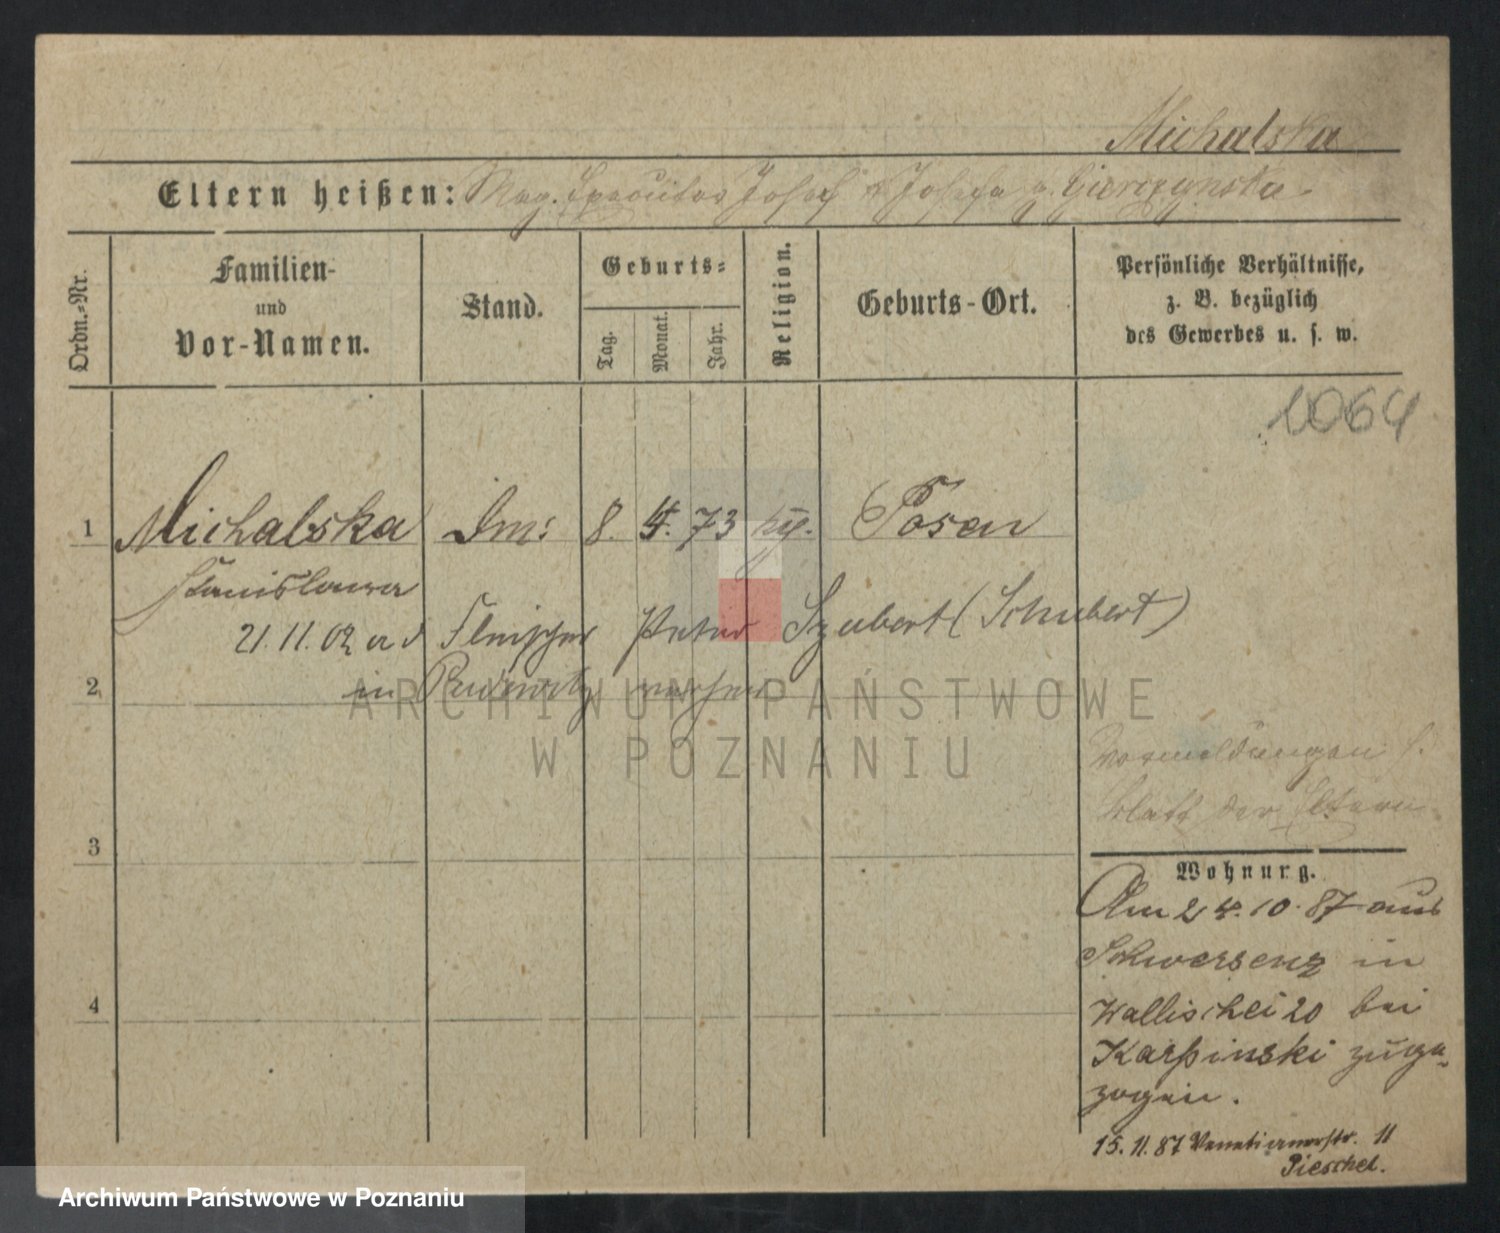 Michalska
Eltern heißen: Mag. Executor Josef & Josefa g. Gierczynska
Ordn.-Nr.
Familien-
und
Vor-Namen.
Stand.
Geburts-
Tag.
Monat.
Jahr.
Religion.
Geburts-Ort.
Persönliche Verhältnisse,
z. B. bezüglich
des Gewerbes u. s. w.
1064
1 Michalska 8. 4. 73 Posen
Stanislawa
21.11.02 a d Fleischer Peter Szubert (Schubert)
in Pudewitz verh
2
Vormeldungen s.
Blatt der Eltern
3
Wohnung.
Am 24.10.87 aus
Schwersenz in
Wallischei 20 bei
Karpinski zuge-
zogen.
4
15.11.87 Venetianerstr. 11
Pieschel.
ARCHIWUM PAŃSTWOWE
W POZNANIU
Archiwum Państwowe w Poznaniu